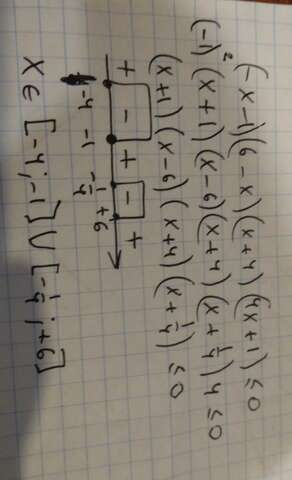 (-x-1)(6-x)(x+4)(4x+1) ≤ 0
(-1)² (x+1)(x-6)(x+4)(x+1/4)4 ≤ 0
(x+1)(x-6)(x+4)(x+1/4) ≤ 0
+ - + - +
-4 -1 -1/4 +6
x ∈ [-4;-1] ∪ [-1/4;+6]